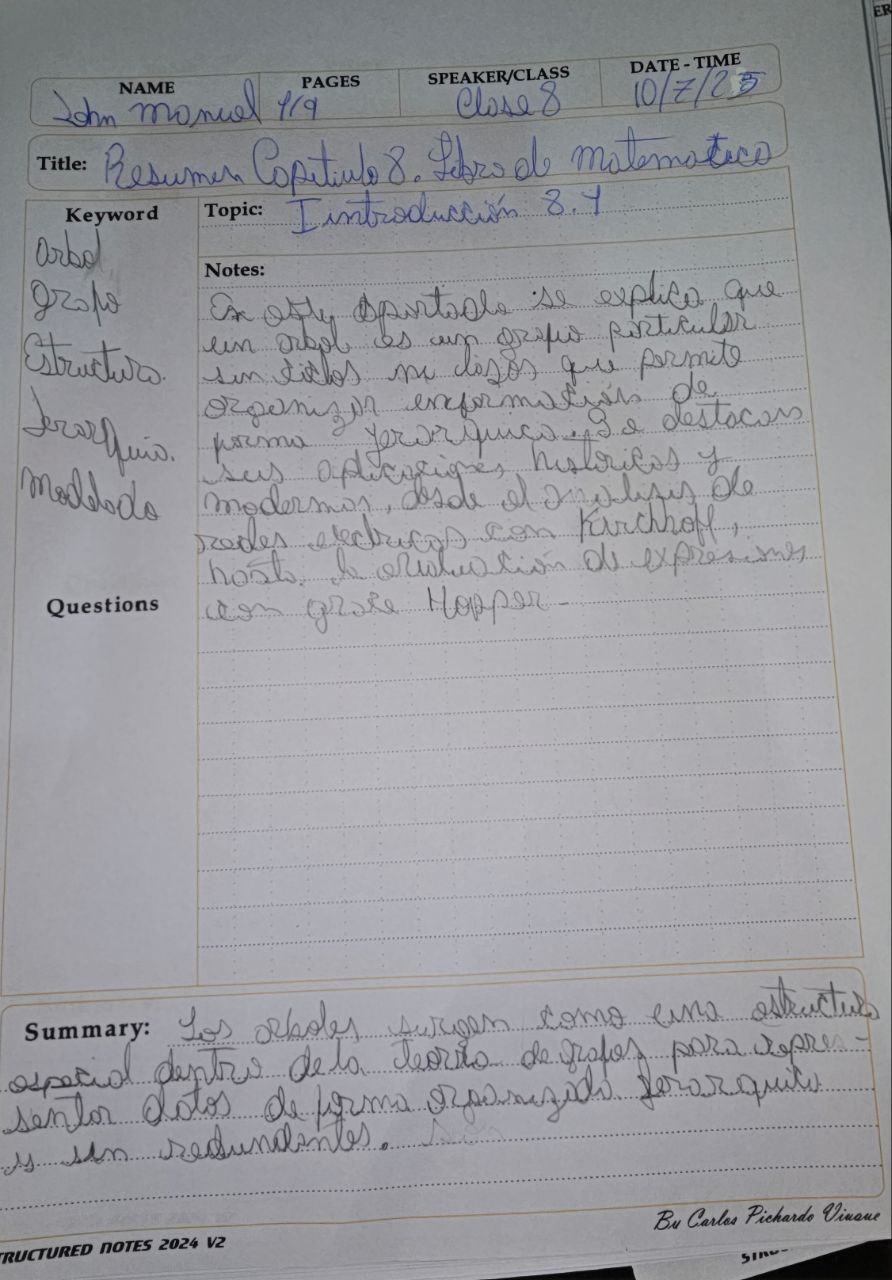 NAME PAGES SPEAKER/CLASS DATE - TIME
John Manuel 1/9 Clase 8 10/7/25
Title: Resumen Capitulo 8. Libro de Matematica
Keyword
Topic: Iintroducción 8.1
Arbol
Grafo
Estructura.
Jerarquia.
Modelado
Notes:
En este apartado se explica que
un arbol es un grafo particular
sin ciclos ni lazos que permite
organizar información de
forma jerarquica. Se destacan
sus aplicaciones historicas y
modernas, desde el analisis de
redes electricas con Kirchhoff,
hasta la evaluación de expresiones
con grace Hopper.
Questions
Summary: Los arboles surgen como una estructura
especial dentro de la teoria de grafos para repre-
sentar datos de forma organizada Jerarquica
y sin redundantes.
By Carlos Pichardo Viuque
TRUCTURED NOTES 2024 V2